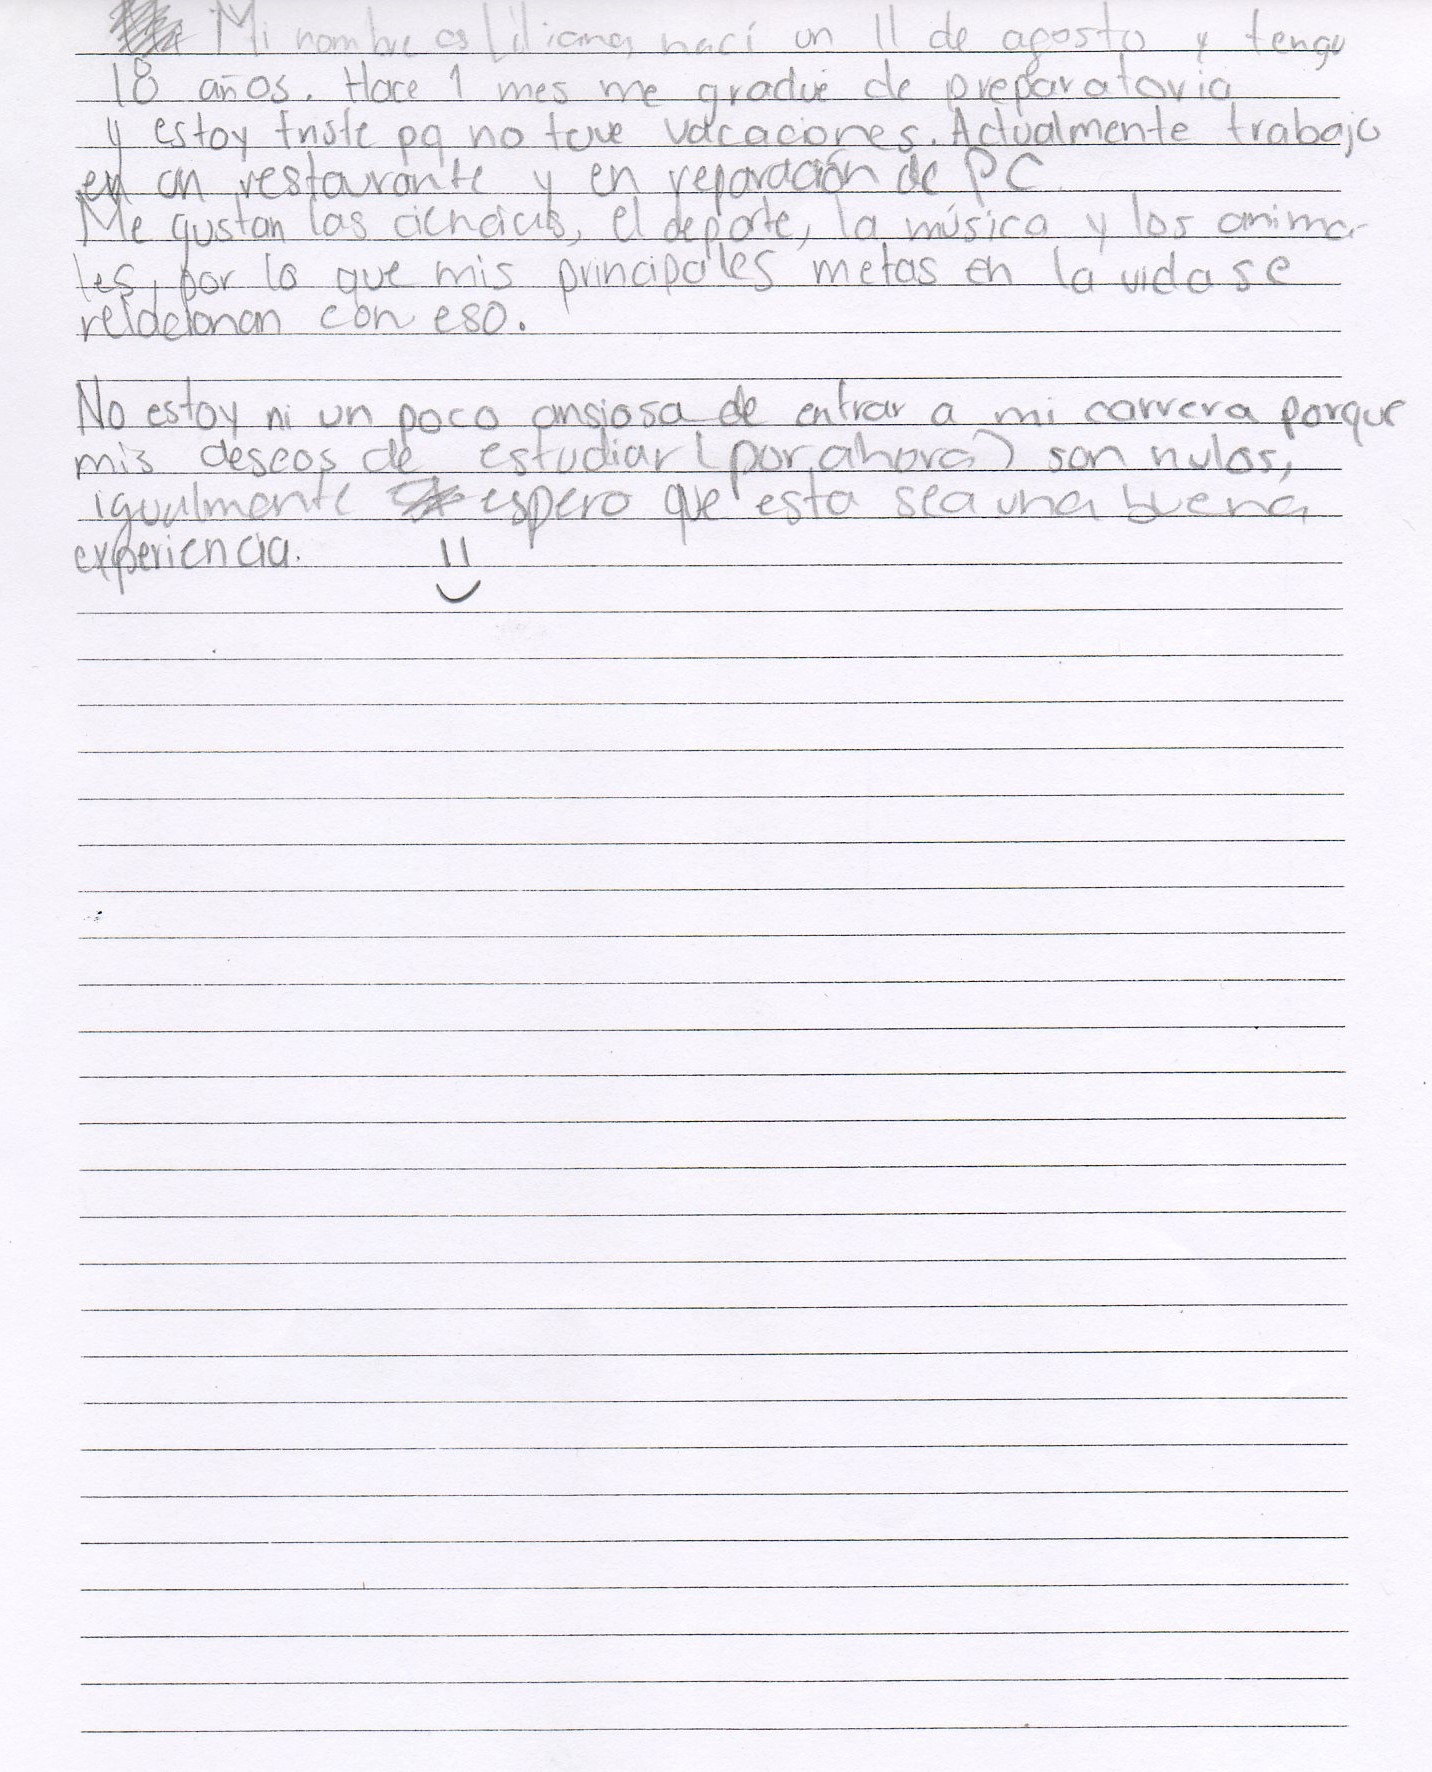 Mi nombre es Liliana, nací un 11 de agosto y tengo
18 años. Hace 1 mes me gradué de preparatoria
y estoy triste pq no tuve vacaciones. Actualmente trabajo
en un restaurante y en reparación de PC
Me gustan las ciencias, el deporte, la música y los anima-
les, por lo que mis principales metas en la vida se
relacionan con eso.
No estoy ni un poco ansiosa de entrar a mi carrera porque
mis deseos de estudiar (por ahora) son nulos,
igualmente espero que esta sea una buena
experiencia.